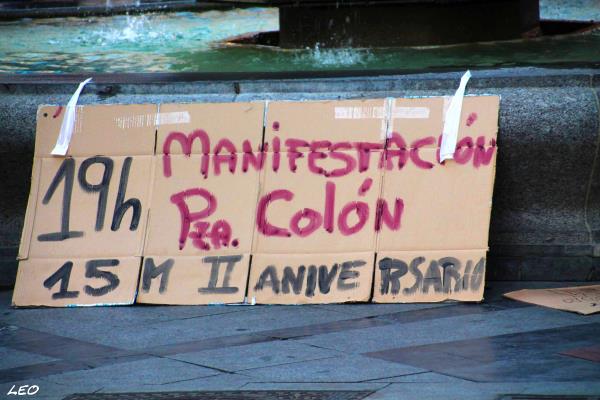 19h
Manifestación
Pza. Colón
15M II ANIVERSARIO
LEO